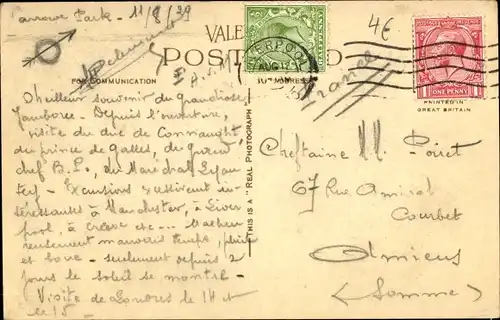 Arrowe Park - 11/8/29
4€
VALE
POST CARD
LIVERPOOL
AUG
FOR COMMUNICATION
ADDRESS
France
ONE PENNY
PRINTED IN
GREAT BRITAIN
THIS IS A "REAL PHOTOGRAPH"
Meilleur souvenir du grandiose
Jamboree - Depuis l'ouverture,
visite du duc de Connaught,
du prince de Galles, du
chef B.P., du Maréchal Lyau
tey - Excursions in
téressantes à Manchester, à Liver
pool, à etc... Malheu
reusement mauvais temps, pluie
et boue - seulement depuis 2
jours le soleil se montre -
Visite de Londres le 14 et
le 15 -
Cheftaine M. Poiret
67 Rue Amiral
Courbet
Amiens
(Somme)